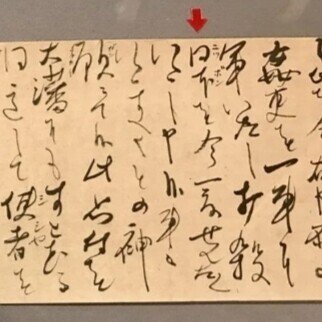 姦吏を一事に
軍いたし打殺
日本を今一度せんたく
いたし申候事に
いたすべくとの神
願にて候此思付を
大藩にもすこむる
同意して使者を